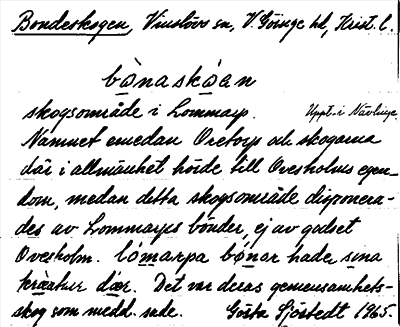 Bondeskogen, Vinslövs sn, V. Göinge hd, Krist. l.
bònaskåan
skogsområde i Lommarp. Uppt. i Nävlinge
Namnet emedan Oretorp och skogarna
där i allmänhet hörde till Ovesholms egen-
dom, medan detta skogsområde disponera-
des av Lommarps bönder, ej av godset
Ovesholm. lómarpa bønar hade sina
kräatur där. Det var deras gemensamhets-
skog som medd. sade. Gösta Sjöstedt 1965.